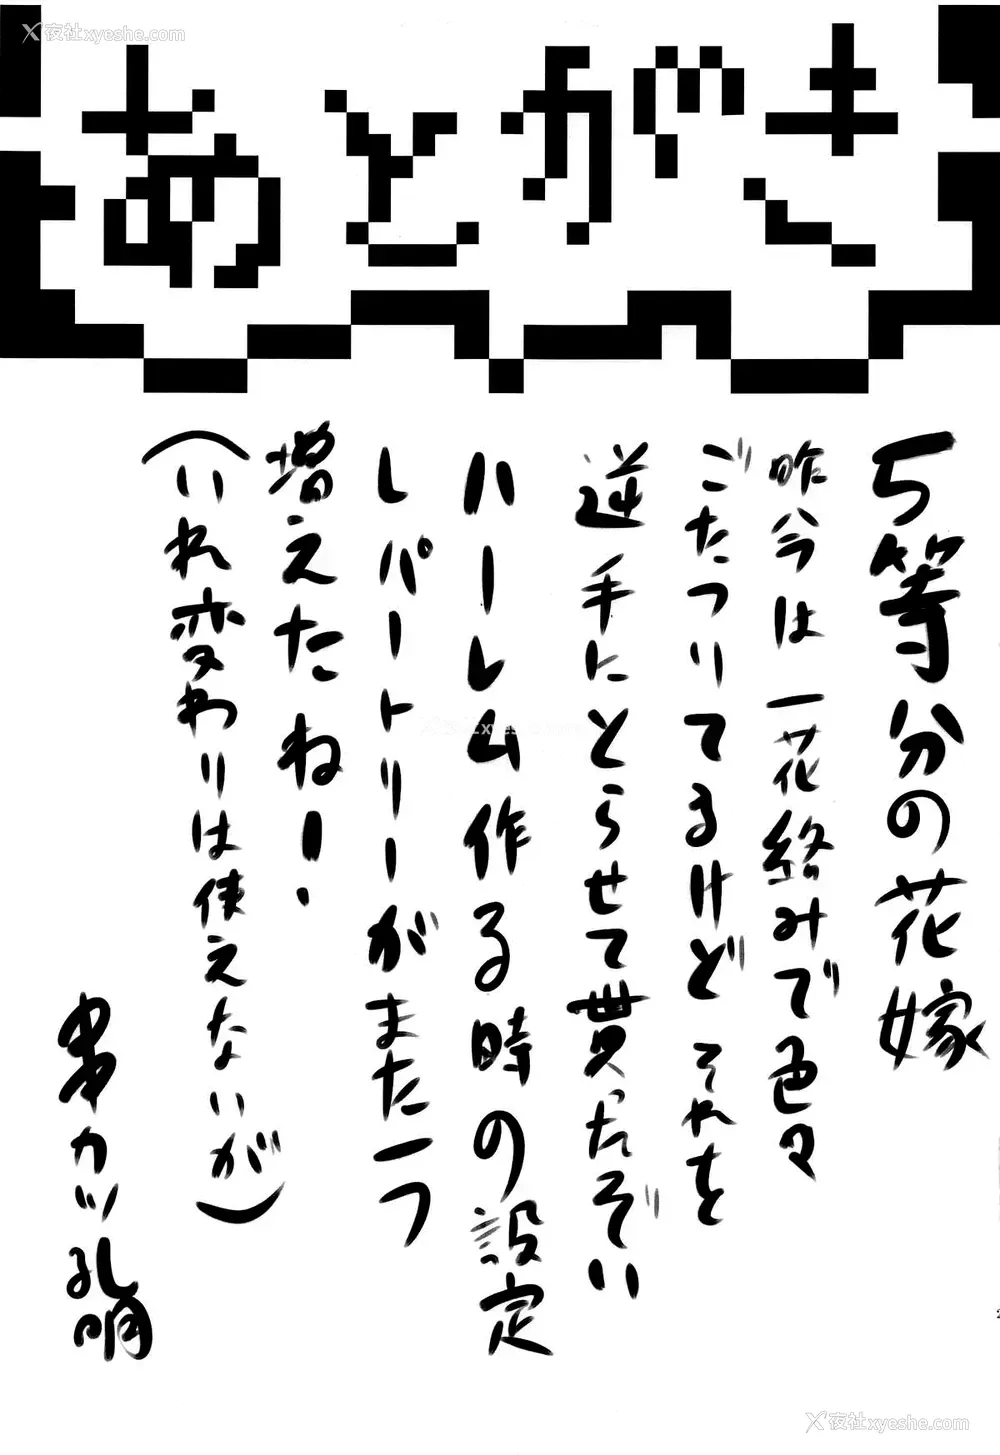 夜社xyeshe.com
あとがき
5等分の花嫁
昨今は一花絡みで色々
ごたついてるけどそれを
逆手にとらせて貰ったぞい
ハーレム作る時の設定
レパートリーがまた一つ
増えたねー.
(いれ変わりは使えないが)
串カツ孔明
夜社xyeshe.com